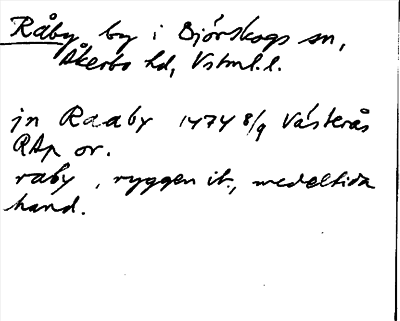 Råby by i Björskogs sn,
Åkerbo hd, Vstml.l.
jn Raaby 1474 8/9 Västerås
RAp or.
raby, ryggen it., medeltida
hand.